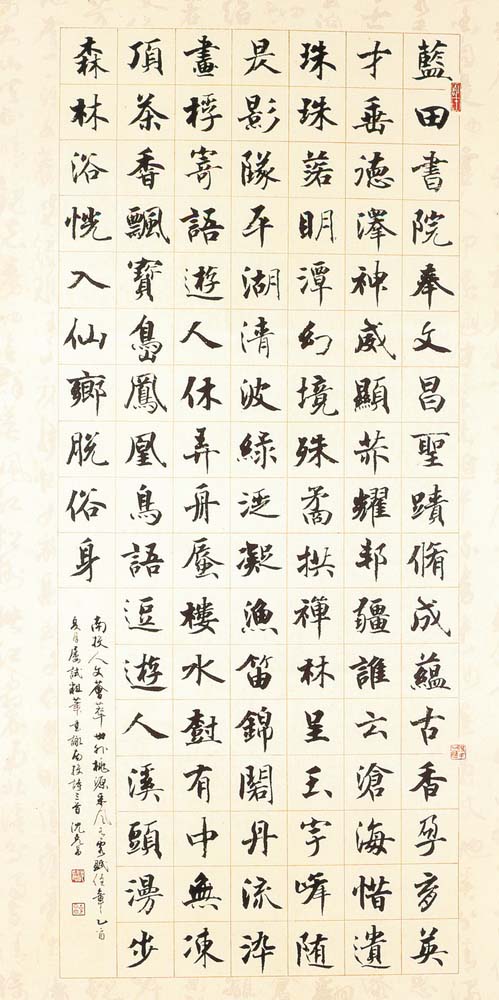 藍田書院奉文昌聖蹟脩成蘊古香孕育英
才垂德澤神威顯赫耀邦疆誰云滄海惜遺
珠珠落明潭幻境殊矞拱禪林呈玉宇嶂随
昃影隊平湖清波綠泛凝漁笛錦閣丹流染
畫桴寄語遊人休弄舟蜃樓水樹有中無凍
頂茶香飄寶島鳳凰鳥語逗遊人溪頭漫步
森林浴恍入仙鄉脫俗身
南投人文薈萃世外桃源采風之賦佳章乙酉
夏月屢試粗筆南投詩三首沈